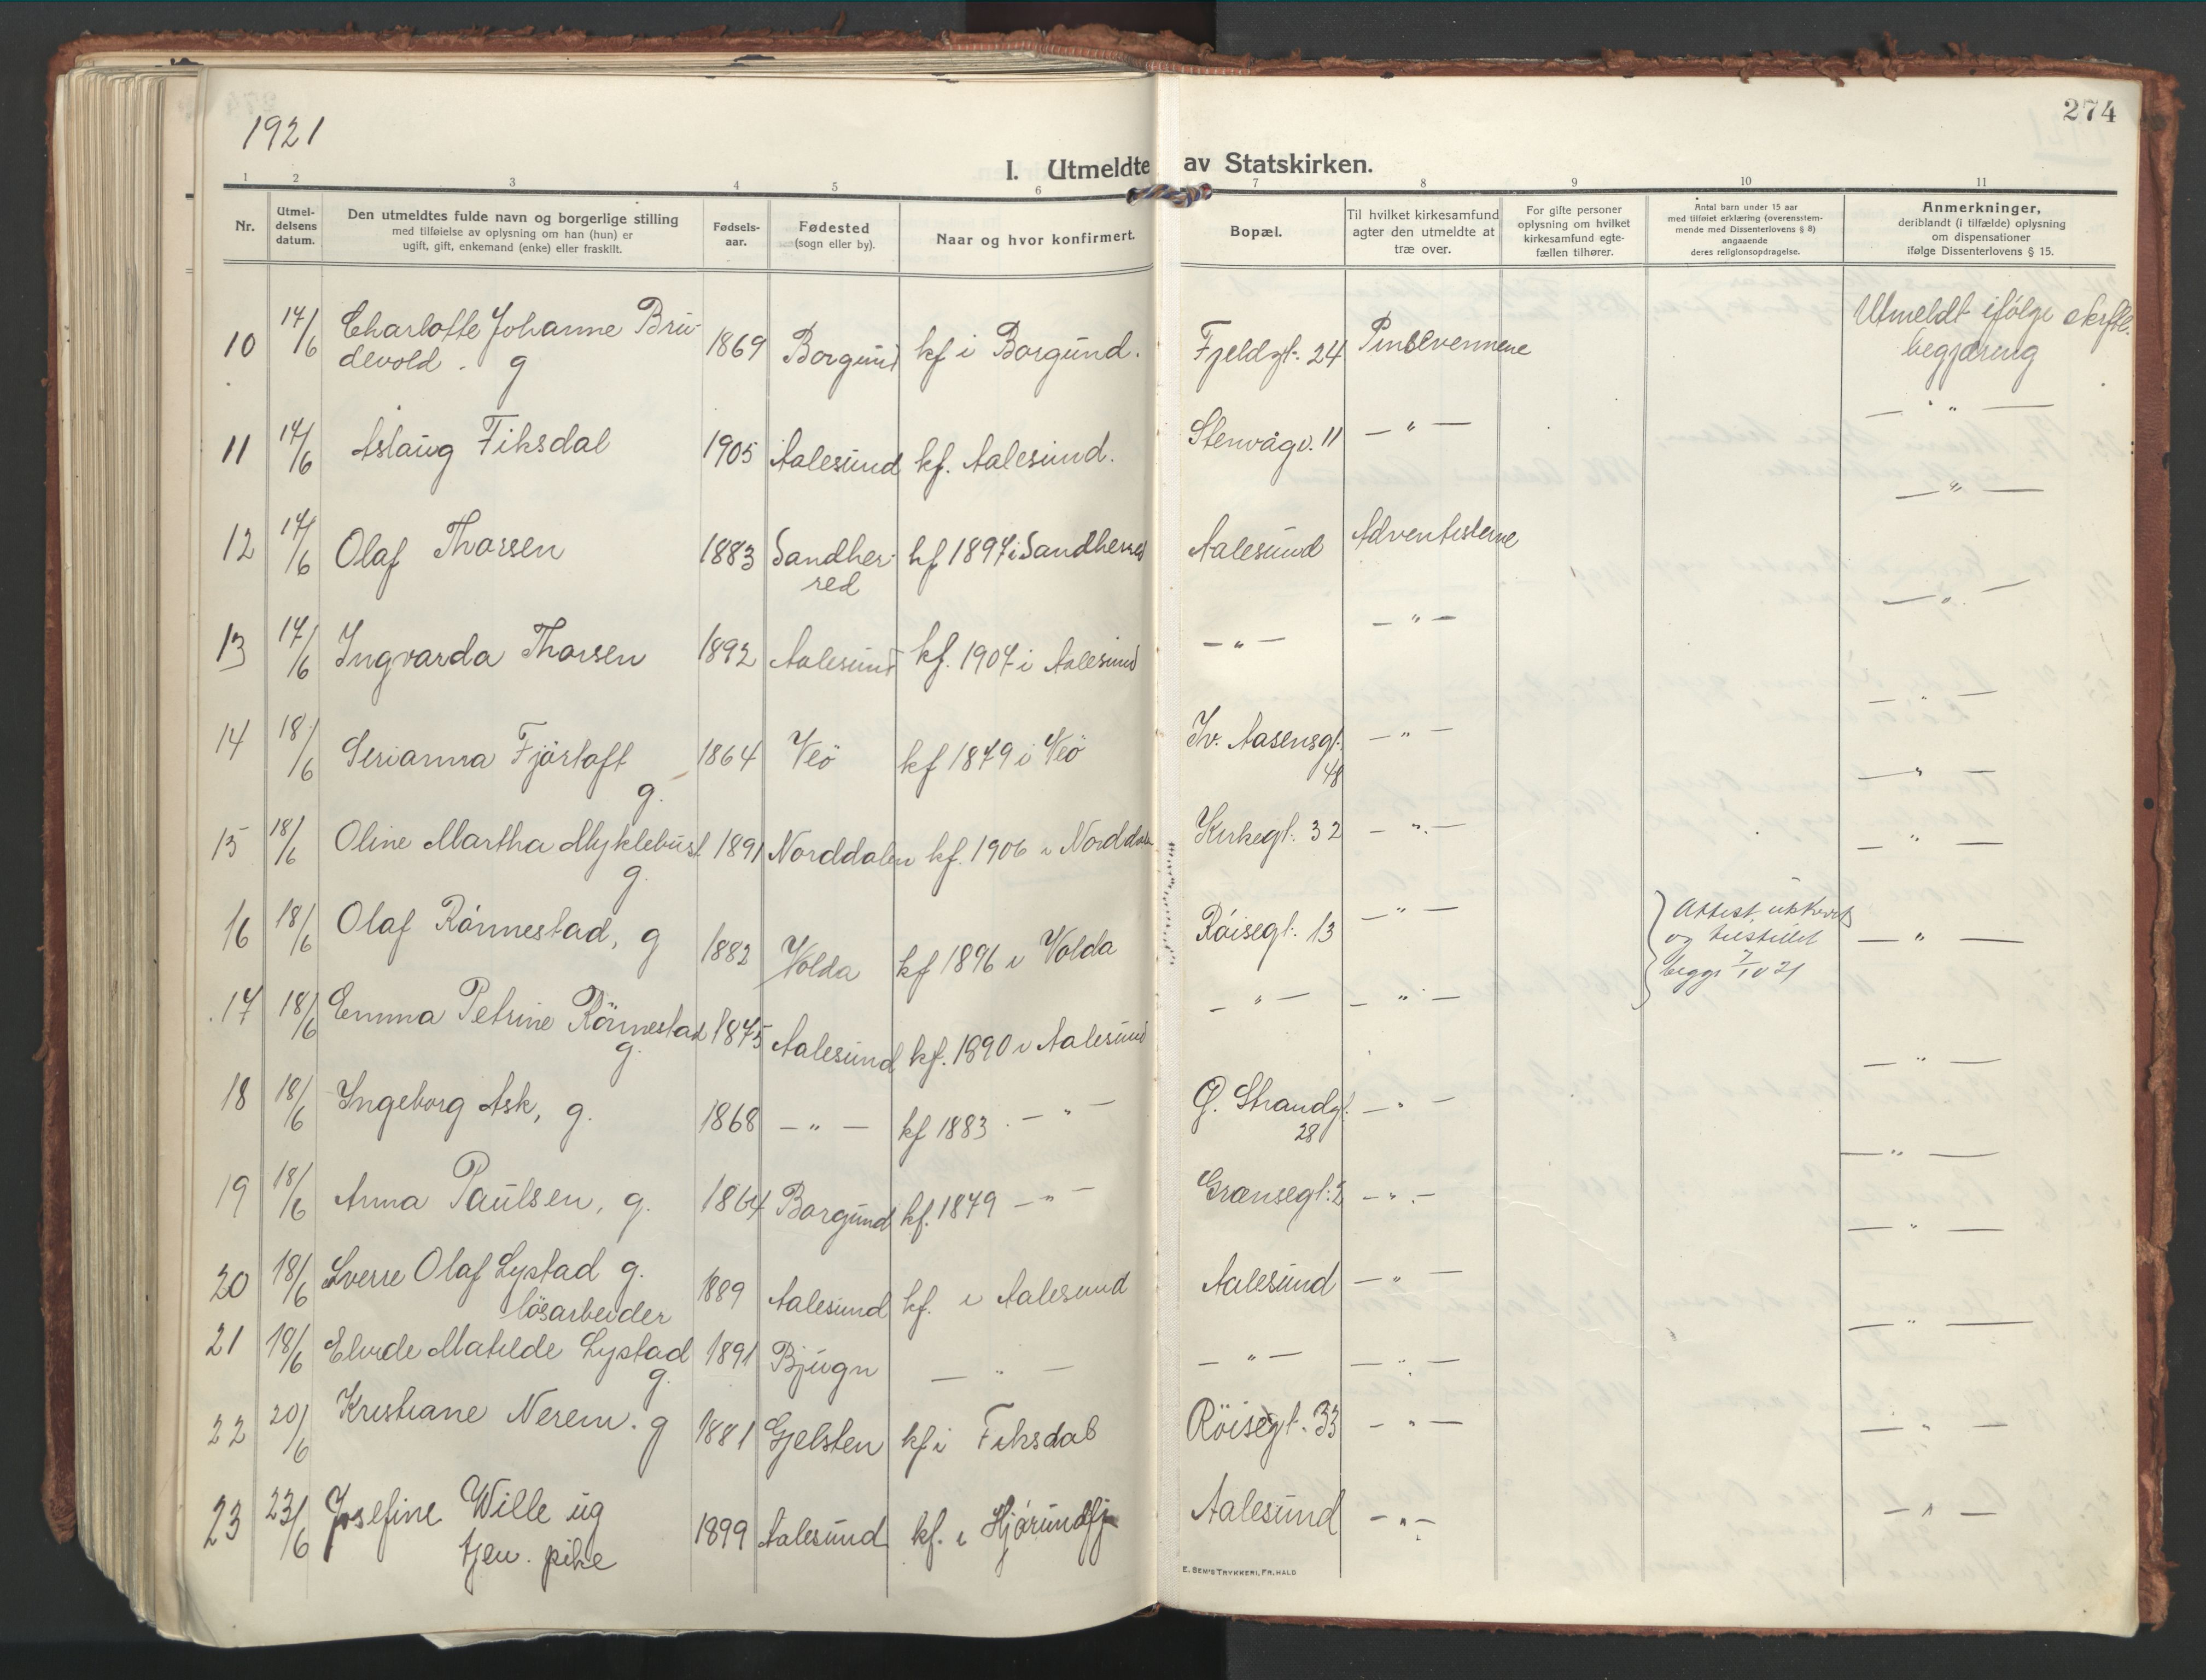 1921
274
I. Utmeldte av Statskirken.
1 2 3 4 5 6 7 8 9 10 11
Nr.
Utmel-
delsens
datum.
Den utmeldtes fulde navn og borgerlige stilling
med tilføielse av oplysning om han (hun) er
ugift, gift, enkemand (enke) eller fraskilt.
Fødsels-
aar.
Fødested
(sogn eller by).
Naar og hvor konfirmert.
Bopæl.
Til hvilket kirkesamfund
agter den utmeldte at
træ over.
For gifte personer
oplysning om hvilket
kirkesamfund egte-
fællen tilhører.
Antal barn under 15 aar
med tilføiet erklæring (overensstem-
mende med Dissenterlovens § 8)
angaaende
deres religionsopdragelse.
Anmerkninger,
deriblandt (i tilfælde) oplysning
om dispensationer
ifølge Dissenterlovens § 15.
10 17/6 Charlotte Johanne Bru- 1869 Borgund kf i Borgund. Fjeldgt. 24 Pinsevennene Utmeldt ifølge
devold. g begjæring
11 17/6 Aslaug Fiksdal 1905 Aalesund kf. Aalesund. Stenvågv. 11 — " — — " —
12 17/6 Olaf Thorsen 1883 Sandher- kf 1897 i Sandherred Aalesund Adventisterne — " —
red
13 17/6 Ingvarda Thorsen 1892 Aalesund kf. 1907 i Aalesund — " — — " — — " —
14 18/6 Serianna Fjørtoft 1864 Veö kf 1879 i Veö Iv. Aasensgt. — " — — " —
g. 48
15 18/6 Oline Martha Myklebust 1891 Norddalen kf. 1906 i Norddalen Kirkegt. 32 — " — — " —
g.
16 18/6 Olaf Rønnestad, g 1882 Volda kf 1896 i Volda Røisegt. 13 — " — Attest utskrevet — " —
og tilstillet
begge 7/10 21
17 18/6 Emma Petrine Rönnestad 1875 Aalesund kf. 1890 i Aalesund — " — — " — — " —
g.
18 18/6 Ingeborg Ask, g. 1868 — " — kf 1883 — " — Ø. Strandgt. — " — — " —
28
19 18/6 Anna Paulsen, g. 1864 Borgund kf. 1879 — " — Grænsegt: 2 — " — — " —
20 18/6 Sverre Olaf Lystad g. 1889 Aalesund kf. i Aalesund Aalesund — " — — " —
lösarbeider
21 18/6 Elvide Matilde Lystad 1891 Bjugn — " — — " — — " — — " —
g.
22 20/6 Kristiane Nerem. g 1881 Gjelsten kf i Fiksdal Röisegt. 33 — " — — " —
23 23/6 Josefine Wille ug 1899 Aalesund kf. i Hjørundfj Aalesund — " — — " —
tjen. pike
E. SEM'S TRYKKERI, FR.HALD